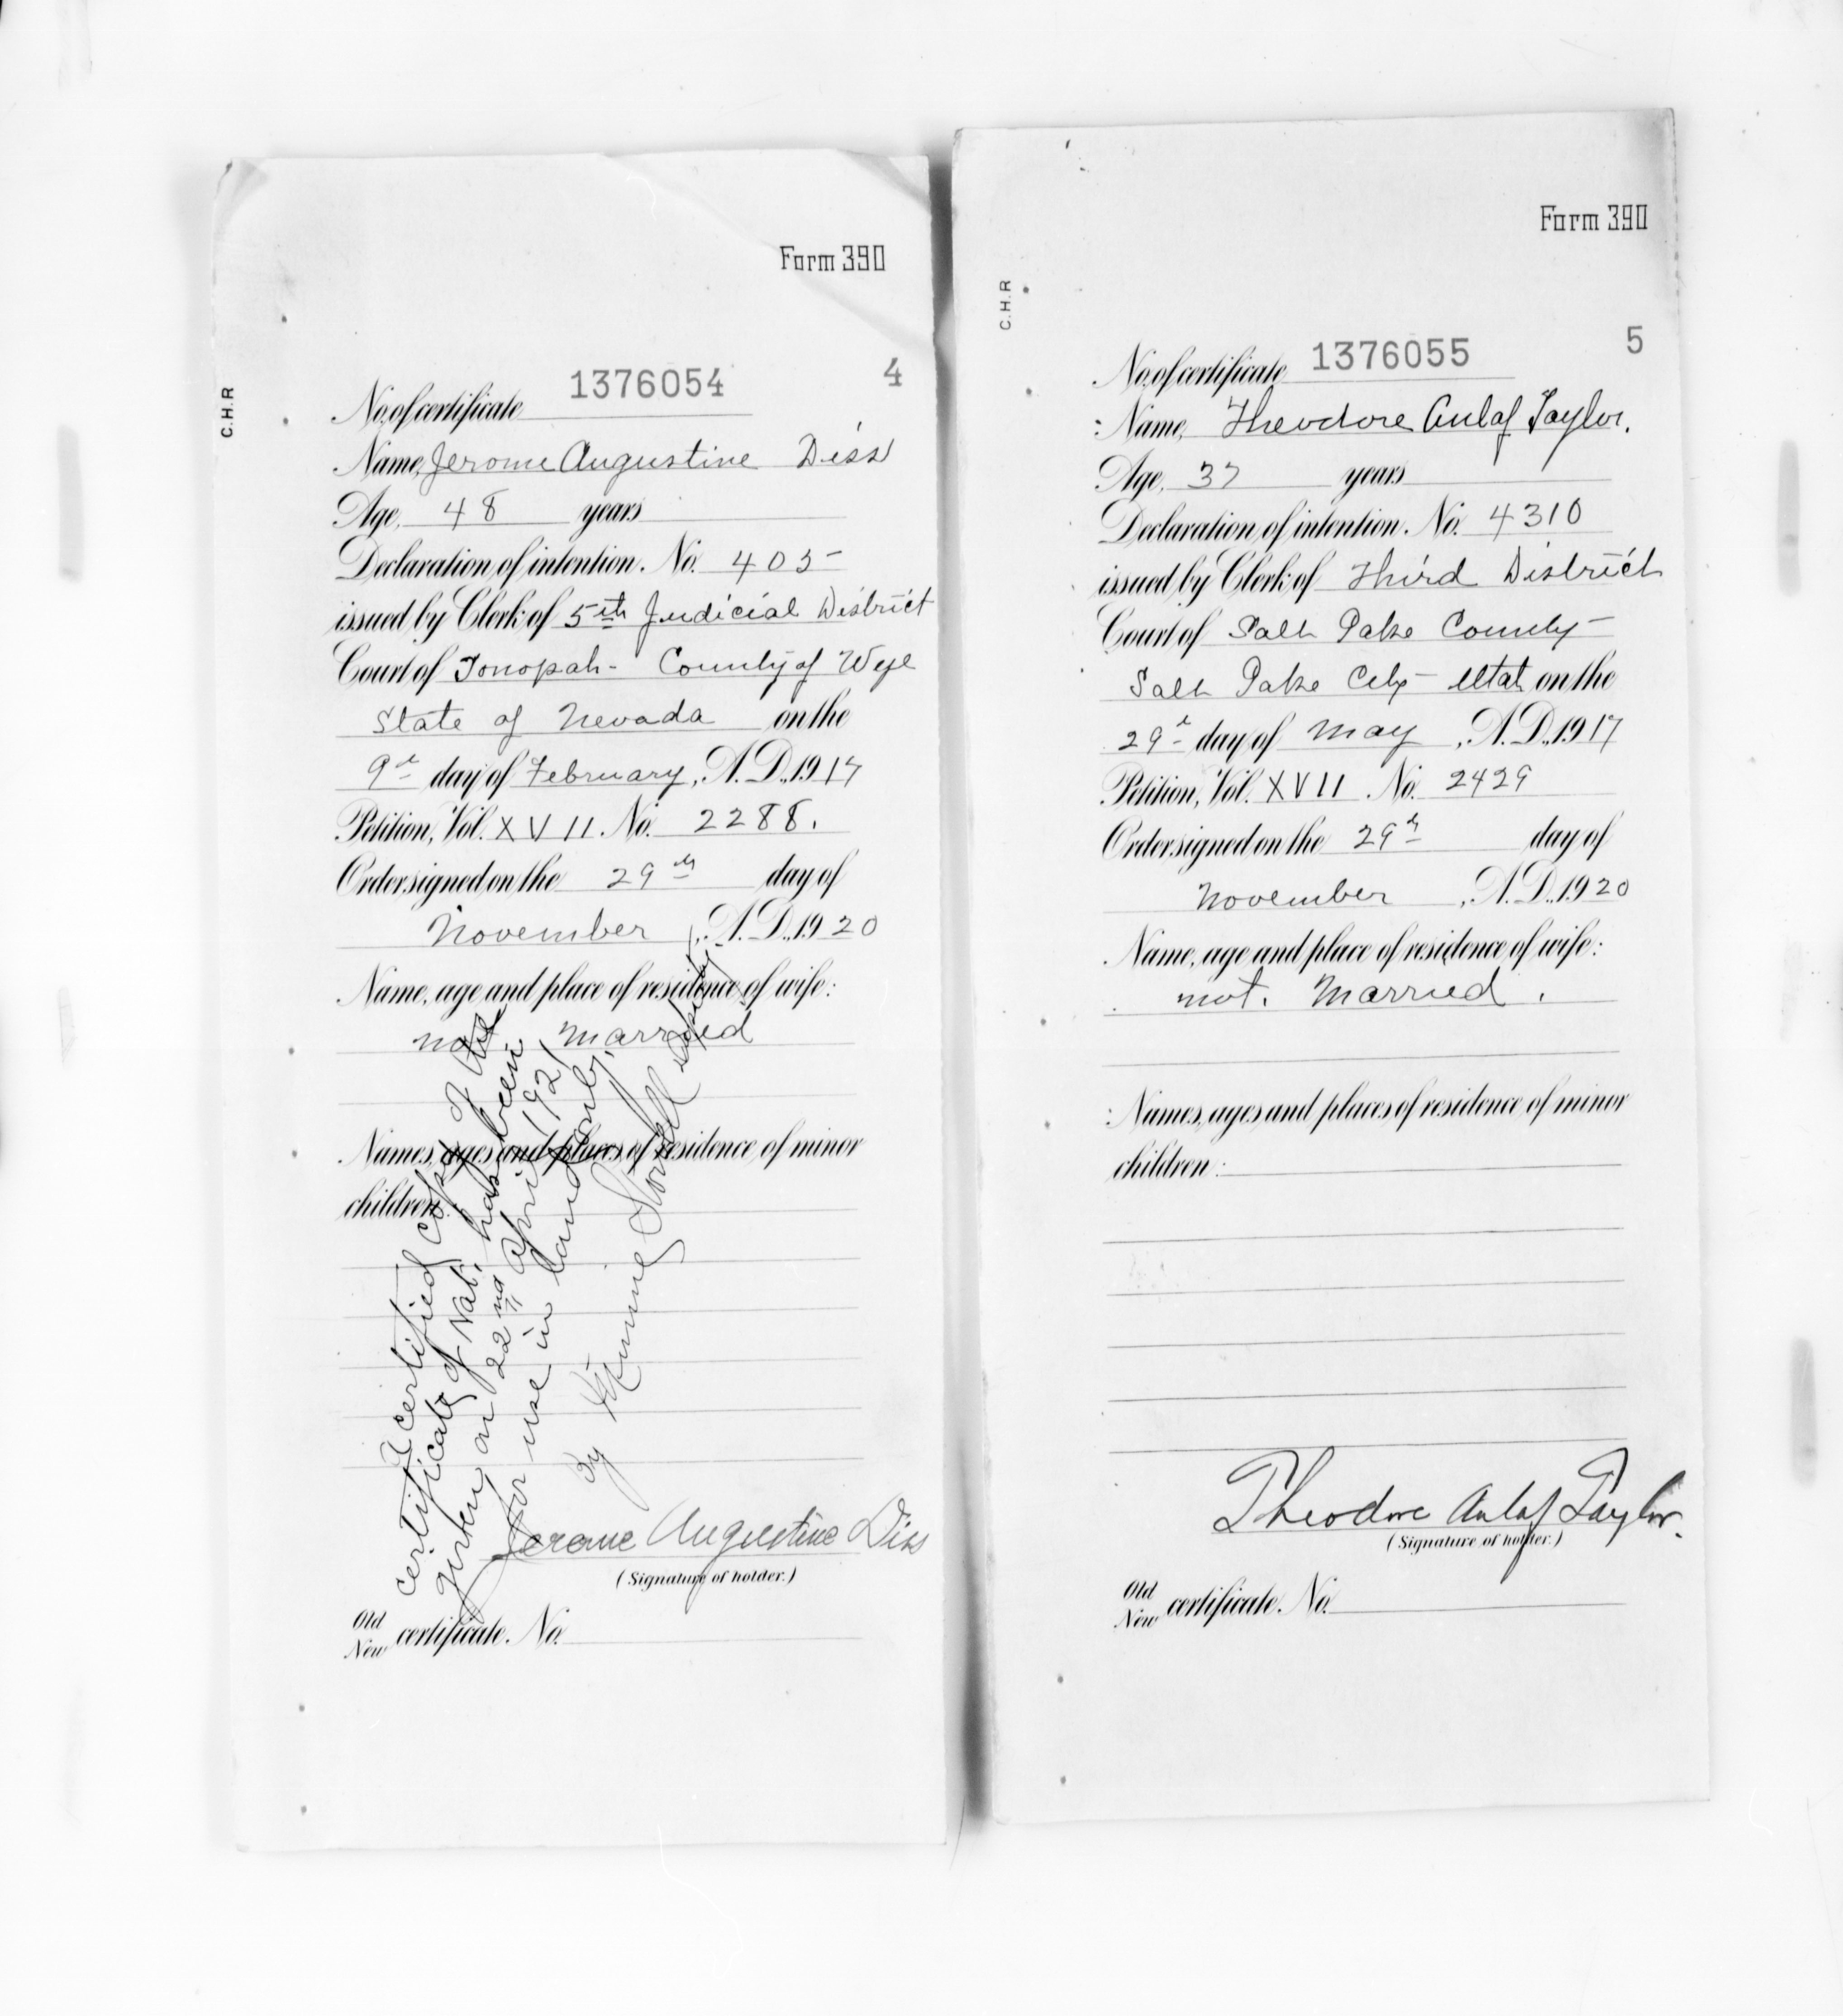 Form 390
C.H.R
No. of certificate 1376054 4
Name, Jerome Augustine Diss
Age, 48 years
Declaration of intention. No. 405-
issued by Clerk of 5th Judicial District
Court of Tonopah - County of Nye
State of Nevada on the
9th day of February, A. D., 1917
Petition, Vol. XVII. No. 2288.
Order signed on the 29th day of
November, A. D., 1920
Name, age and place of residence of wife:
not married
Names, ages and places of residence of minor
children:
A certified copy of the
certificate of Nat. has been
given on 22nd April 1921
for use in land only.
By Minnie Stovall Deputy
Jerome Augustine Diss
(Signature of holder.)
Old
New certificate. No.
Form 390
C.H.R
No. of certificate 1376055 5
Name, Theodore Aulaf Taylor.
Age, 37 years
Declaration of intention. No. 4310
issued by Clerk of Third District
Court of Salt Lake County -
Salt Lake City - Utah on the
29th day of May, A. D., 1917
Petition, Vol. XVII No. 2429
Order signed on the 29th day of
November, A. D., 1920
Name, age and place of residence of wife:
not. Married.
Names, ages and places of residence of minor
children:
Theodore Aulaf Taylor.
(Signature of holder.)
Old
New certificate. No.